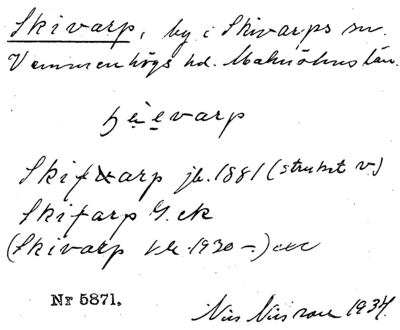 Skivarp, by i Skivarps sn.
Vemmenhögs hd. Malmöhus län.
Skifvarp jb. 1881 (struket v.)
Skifarp G. ek
(Skivarp 1930 –)
Nr 5871.
Nils Nilsson 1934.